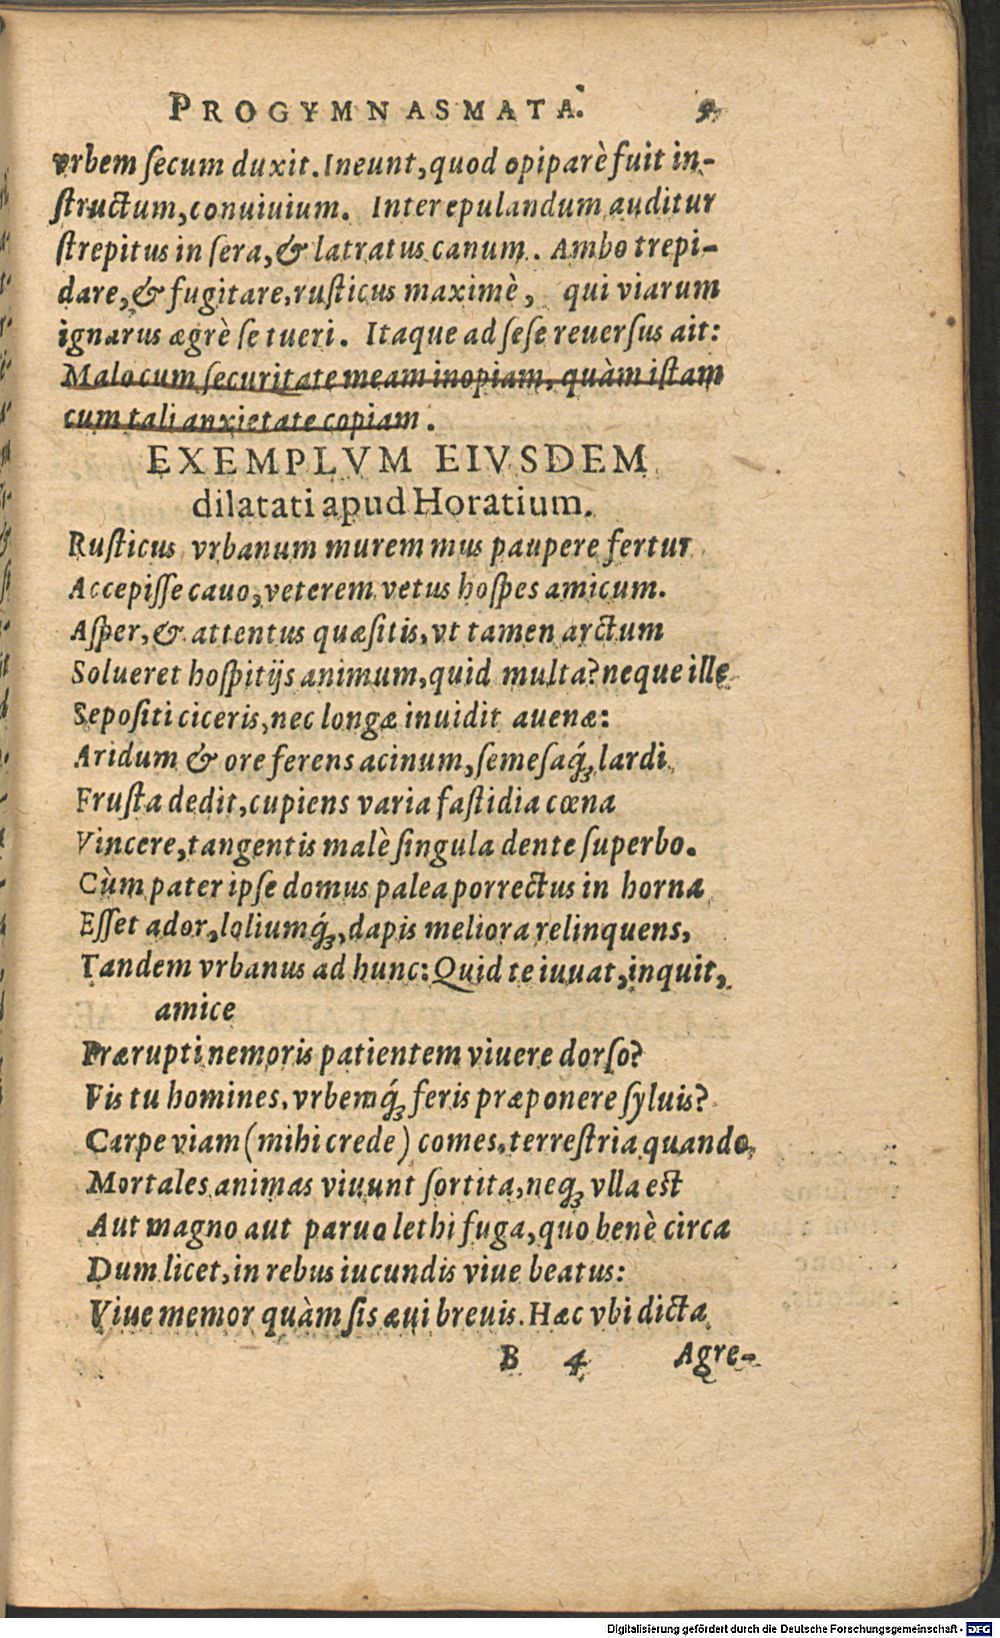 PROGYMNASMATA. 4
vrbem ſecum duxit. Ineunt, quod opiparè fuit in-
ſtructum, conuiuium. Inter epulandum auditur
ſtrepitus in ſera, & latratus canum. Ambo trepi-
dare, & fugitare, ruſticus maximè, qui viarum
ignarus ægrè ſe tueri. Itaque ad ſeſe reuerſus ait:
Malo cum ſecuritate meam inopiam, quàm iſtam
cum tali anxietate copiam.
EXEMPLVM EIVSDEM
dilatati apud Horatium.
Ruſticus vrbanum murem mus paupere fertur
Accepiſſe cauo, veterem vetus hoſpes amicum.
Aſper, & attentus quæſitis, vt tamen arctum
Solueret hoſpitijs animum, quid multa? neque ille
Sepoſiti ciceris, nec longæ inuidit auenæ:
Aridum & ore ferens acinum, ſemeſaq́ꝫ lardi
Fruſta dedit, cupiens varia faſtidia cœna
Vincere, tangentis malè ſingula dente ſuperbo.
Cùm pater ipſe domus palea porrectus in horna
Eſſet ador, loliumq́ꝫ, dapis meliora relinquens,
Tandem vrbanus ad hunc: Quid te iuuat, inquit,
amice
Prærupti nemoris patientem viuere dorſo?
Vis tu homines, vrbemq́ꝫ feris præponere ſyluis?
Carpe viam (mihi crede) comes, terreſtria quando
Mortales animas viuunt ſortita, neqꝫ vlla est
Aut magno aut paruo lethi fuga, quo benè circa
Dum licet, in rebus iucundis viue beatus:
Viue memor quàm ſis æui breuis. Hæc vbi dicta
B 4 Agre-
Digitalisierung gefördert durch die Deutsche Forschungsgemeinschaft - DFG